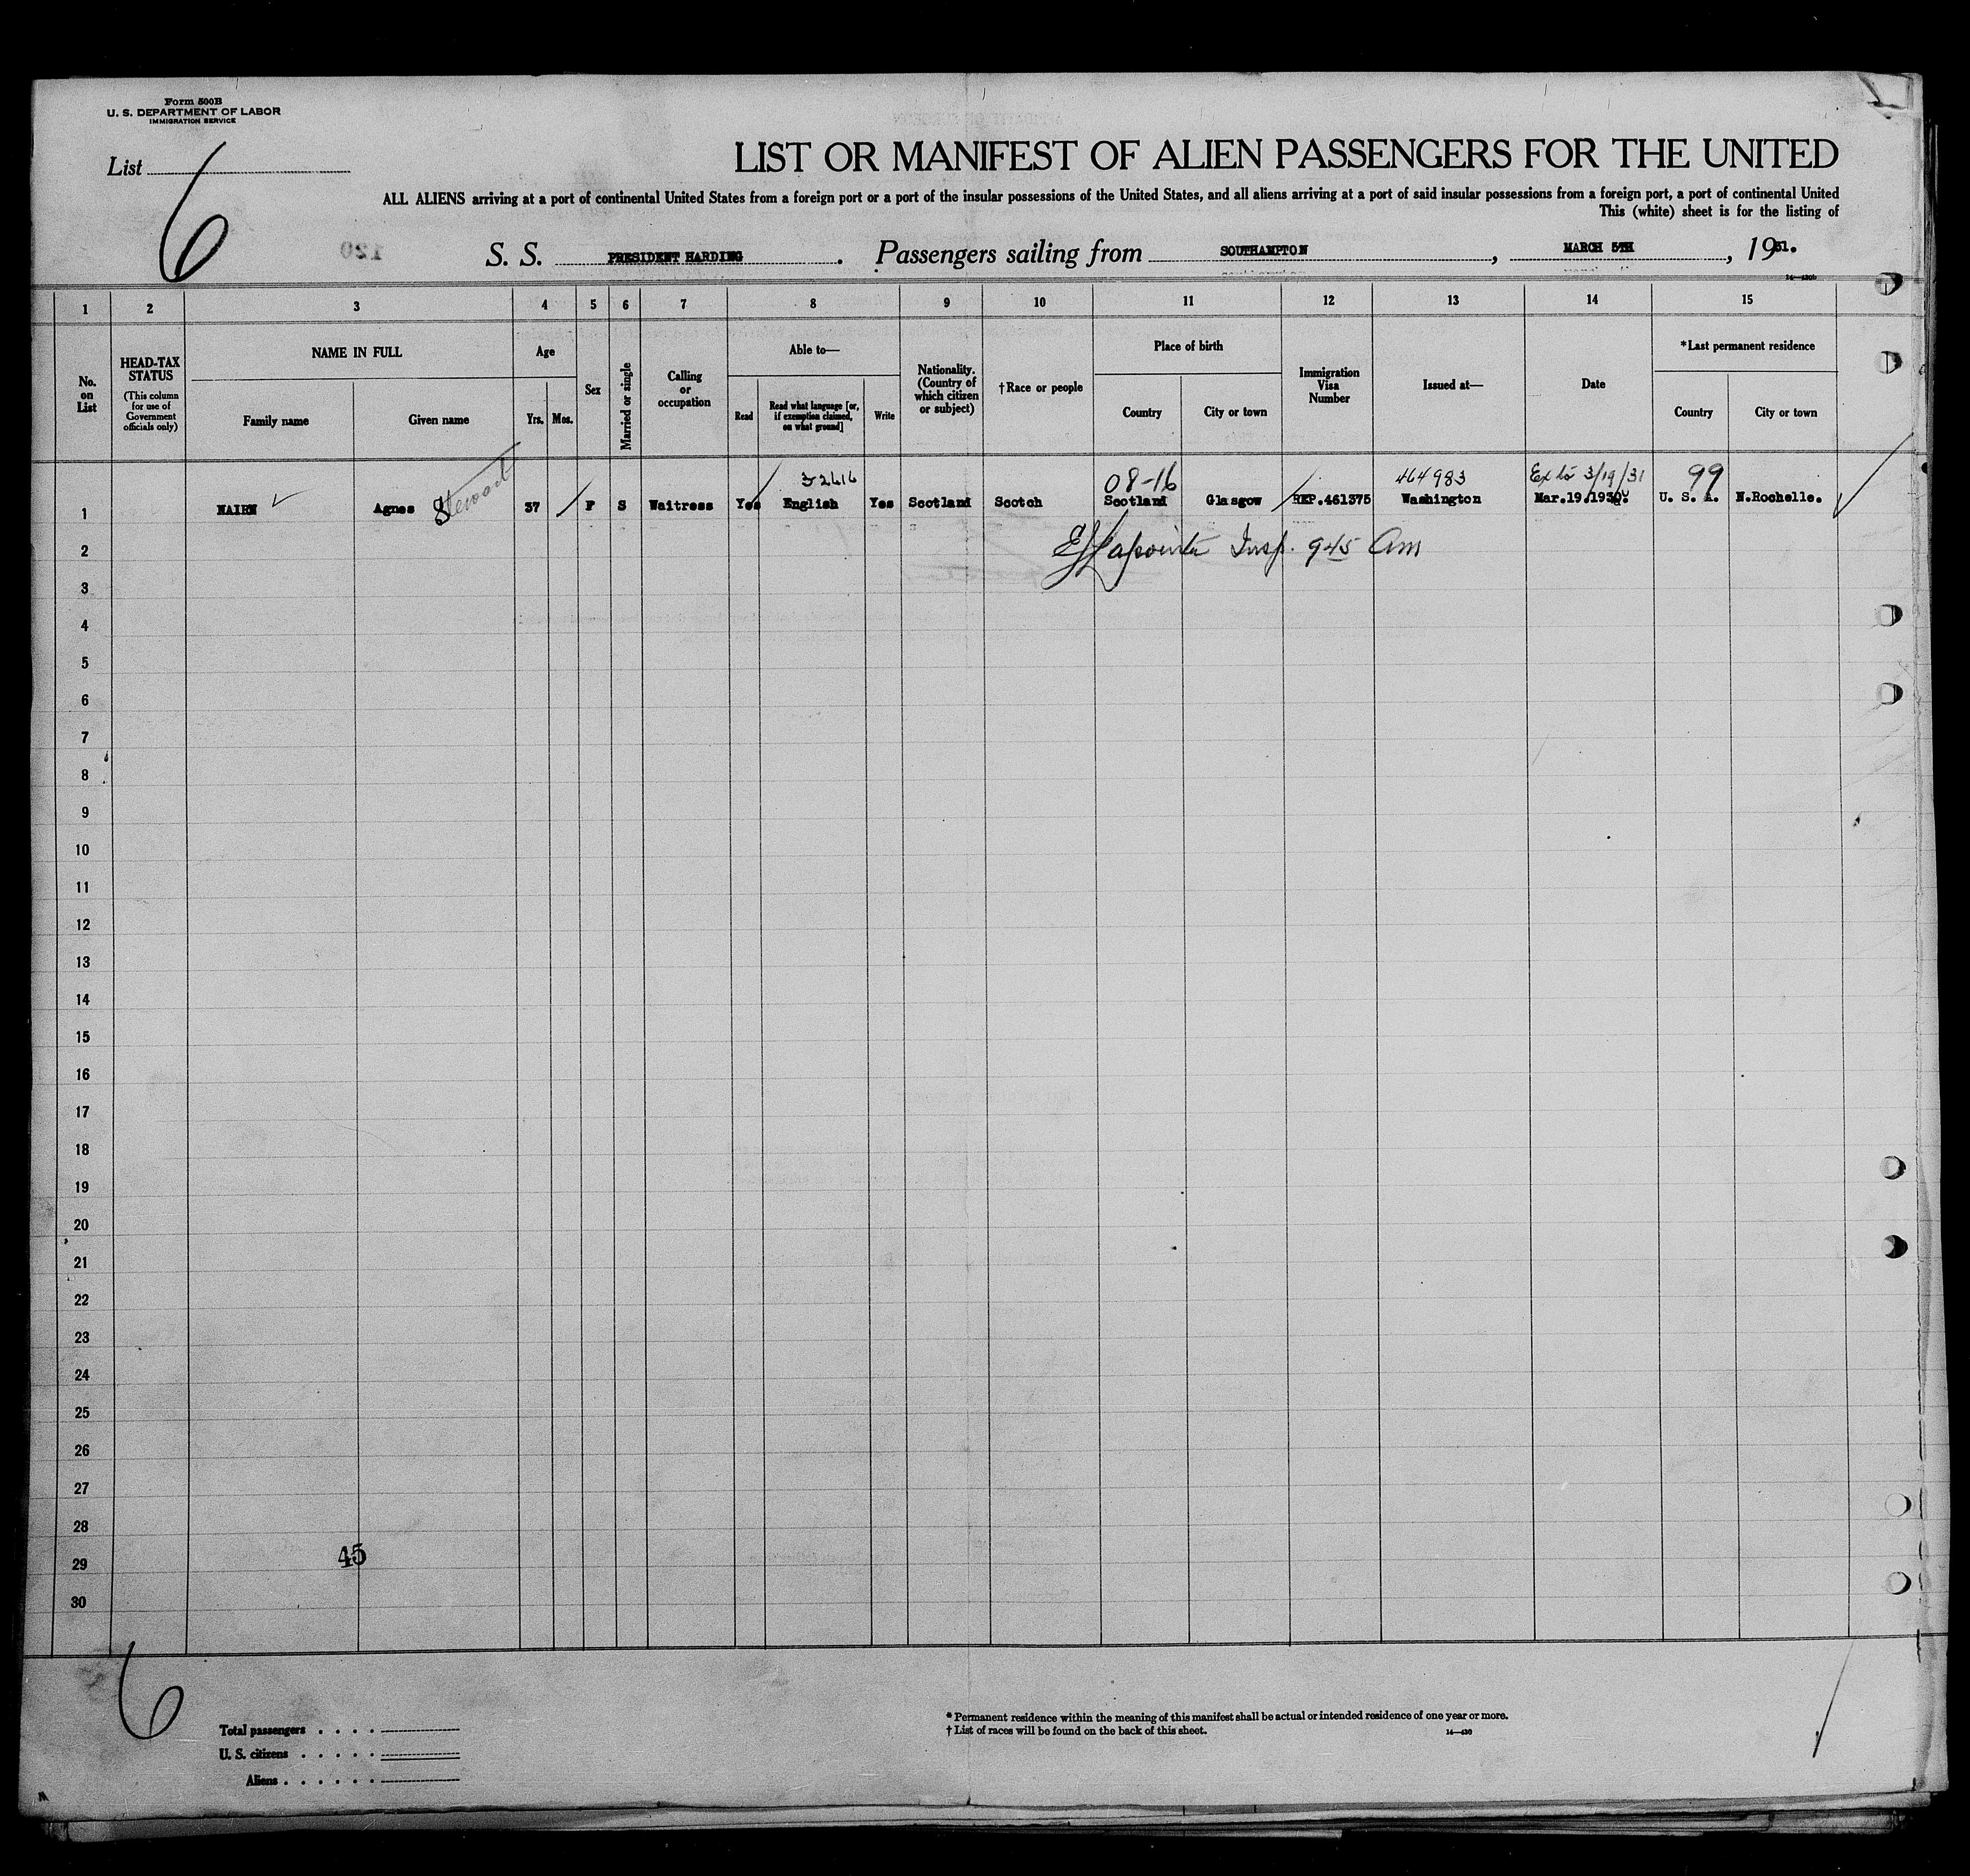 Form 500B
U. S. DEPARTMENT OF LABOR
IMMIGRATION SERVICE
List
6
LIST OR MANIFEST OF ALIEN PASSENGERS FOR THE UNITED
ALL ALIENS arriving at a port of continental United States from a foreign port or a port of the insular possessions of the United States, and all aliens arriving at a port of said insular possessions from a foreign port, a port of continental United
This (white) sheet is for the listing of
120
S. S. PRESIDENT HARDING. Passengers sailing from SOUTHAMPTON, MARCH 5TH, 1931.
1 2 3 4 5 6 7 8 9 10 11 12 13 14 15
No. on List
HEAD-TAX STATUS
(This column for use of Government officials only)
NAME IN FULL
Family name Given name
Age
Yrs. Mos.
Sex
Married or single
Calling or occupation
Able to—
Read Read what language [or, if exemption claimed, on what ground] Write
Nationality. (Country of which citizen or subject)
†Race or people
Place of birth
Country City or town
Immigration Visa Number
Issued at—
Date
*Last permanent residence
Country City or town
32616 08-16 464983 Ex to 3/19/31 99
1 NAIRN Agnes Stewart 37 F S Waitress Yes English Yes Scotland Scotch Scotland Glasgow REP.461375 Washington Mar.19.1930. U. S. A. N.Rochelle.
2 Lapointe Insp. 945 Am
3
4
5
6
7
8
9
10
11
12
13
14
15
16
17
18
19
20
21
22
23
24
25
26
27
28
45
29
30
6
Total passengers
U. S. citizens
Aliens
* Permanent residence within the meaning of this manifest shall be actual or intended residence of one year or more.
† List of races will be found on the back of this sheet.